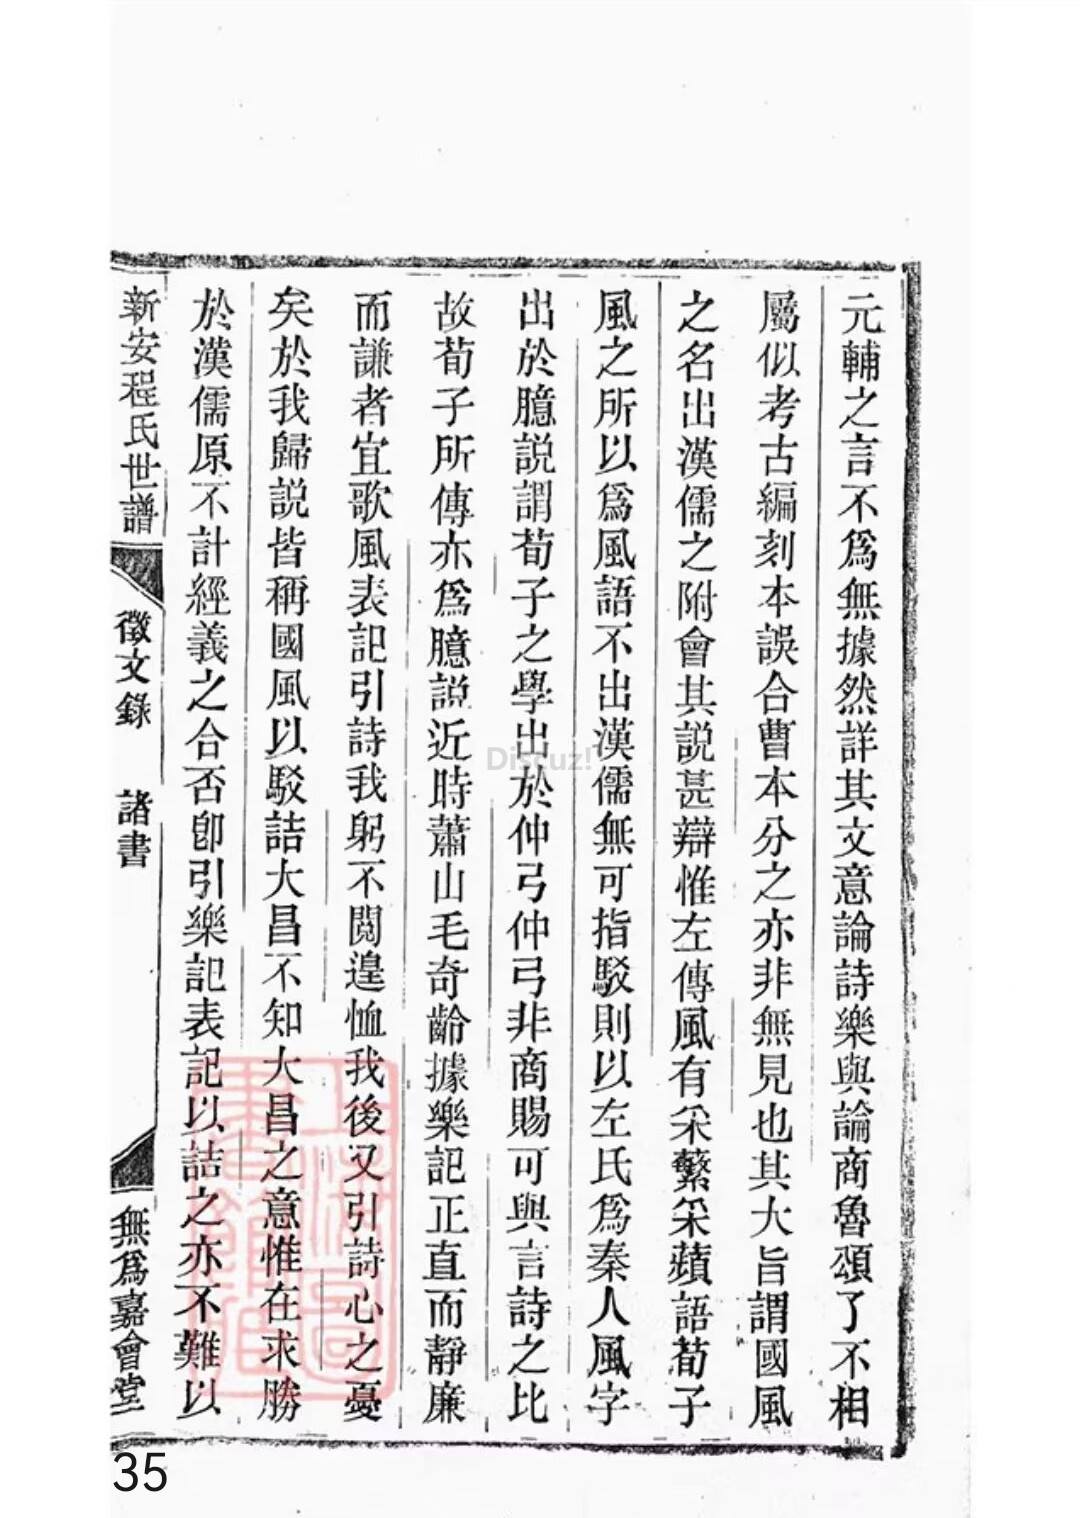 元輔之言不爲無據然詳其文意論詩樂與論商魯頌了不相
屬似考古編刻本誤合曹本分之亦非無見也其大旨謂國風
之名出漢儒之附會其說甚辯惟左傳風有采蘩采蘋語荀子
風之所以爲風語不出漢儒無可指駁則以左氏爲秦人風字
出於臆説謂荀子之學出於仲弓仲弓非商賜可與言詩之比
故荀子所傳亦爲臆説近時蕭山毛奇齡據樂記正直而靜廉
而謙者宜歌風表記引詩我躬不閱遑恤我後又引詩心之憂
矣於我歸説皆稱國風以駁詰大昌不知大昌之意惟在求勝
於漢儒原不計經義之合否卽引樂記表記以詰之亦不難以
新安程氏世譜 徵文錄 諸書 無爲嘉會堂
上海圖書館藏
Discuz!
35